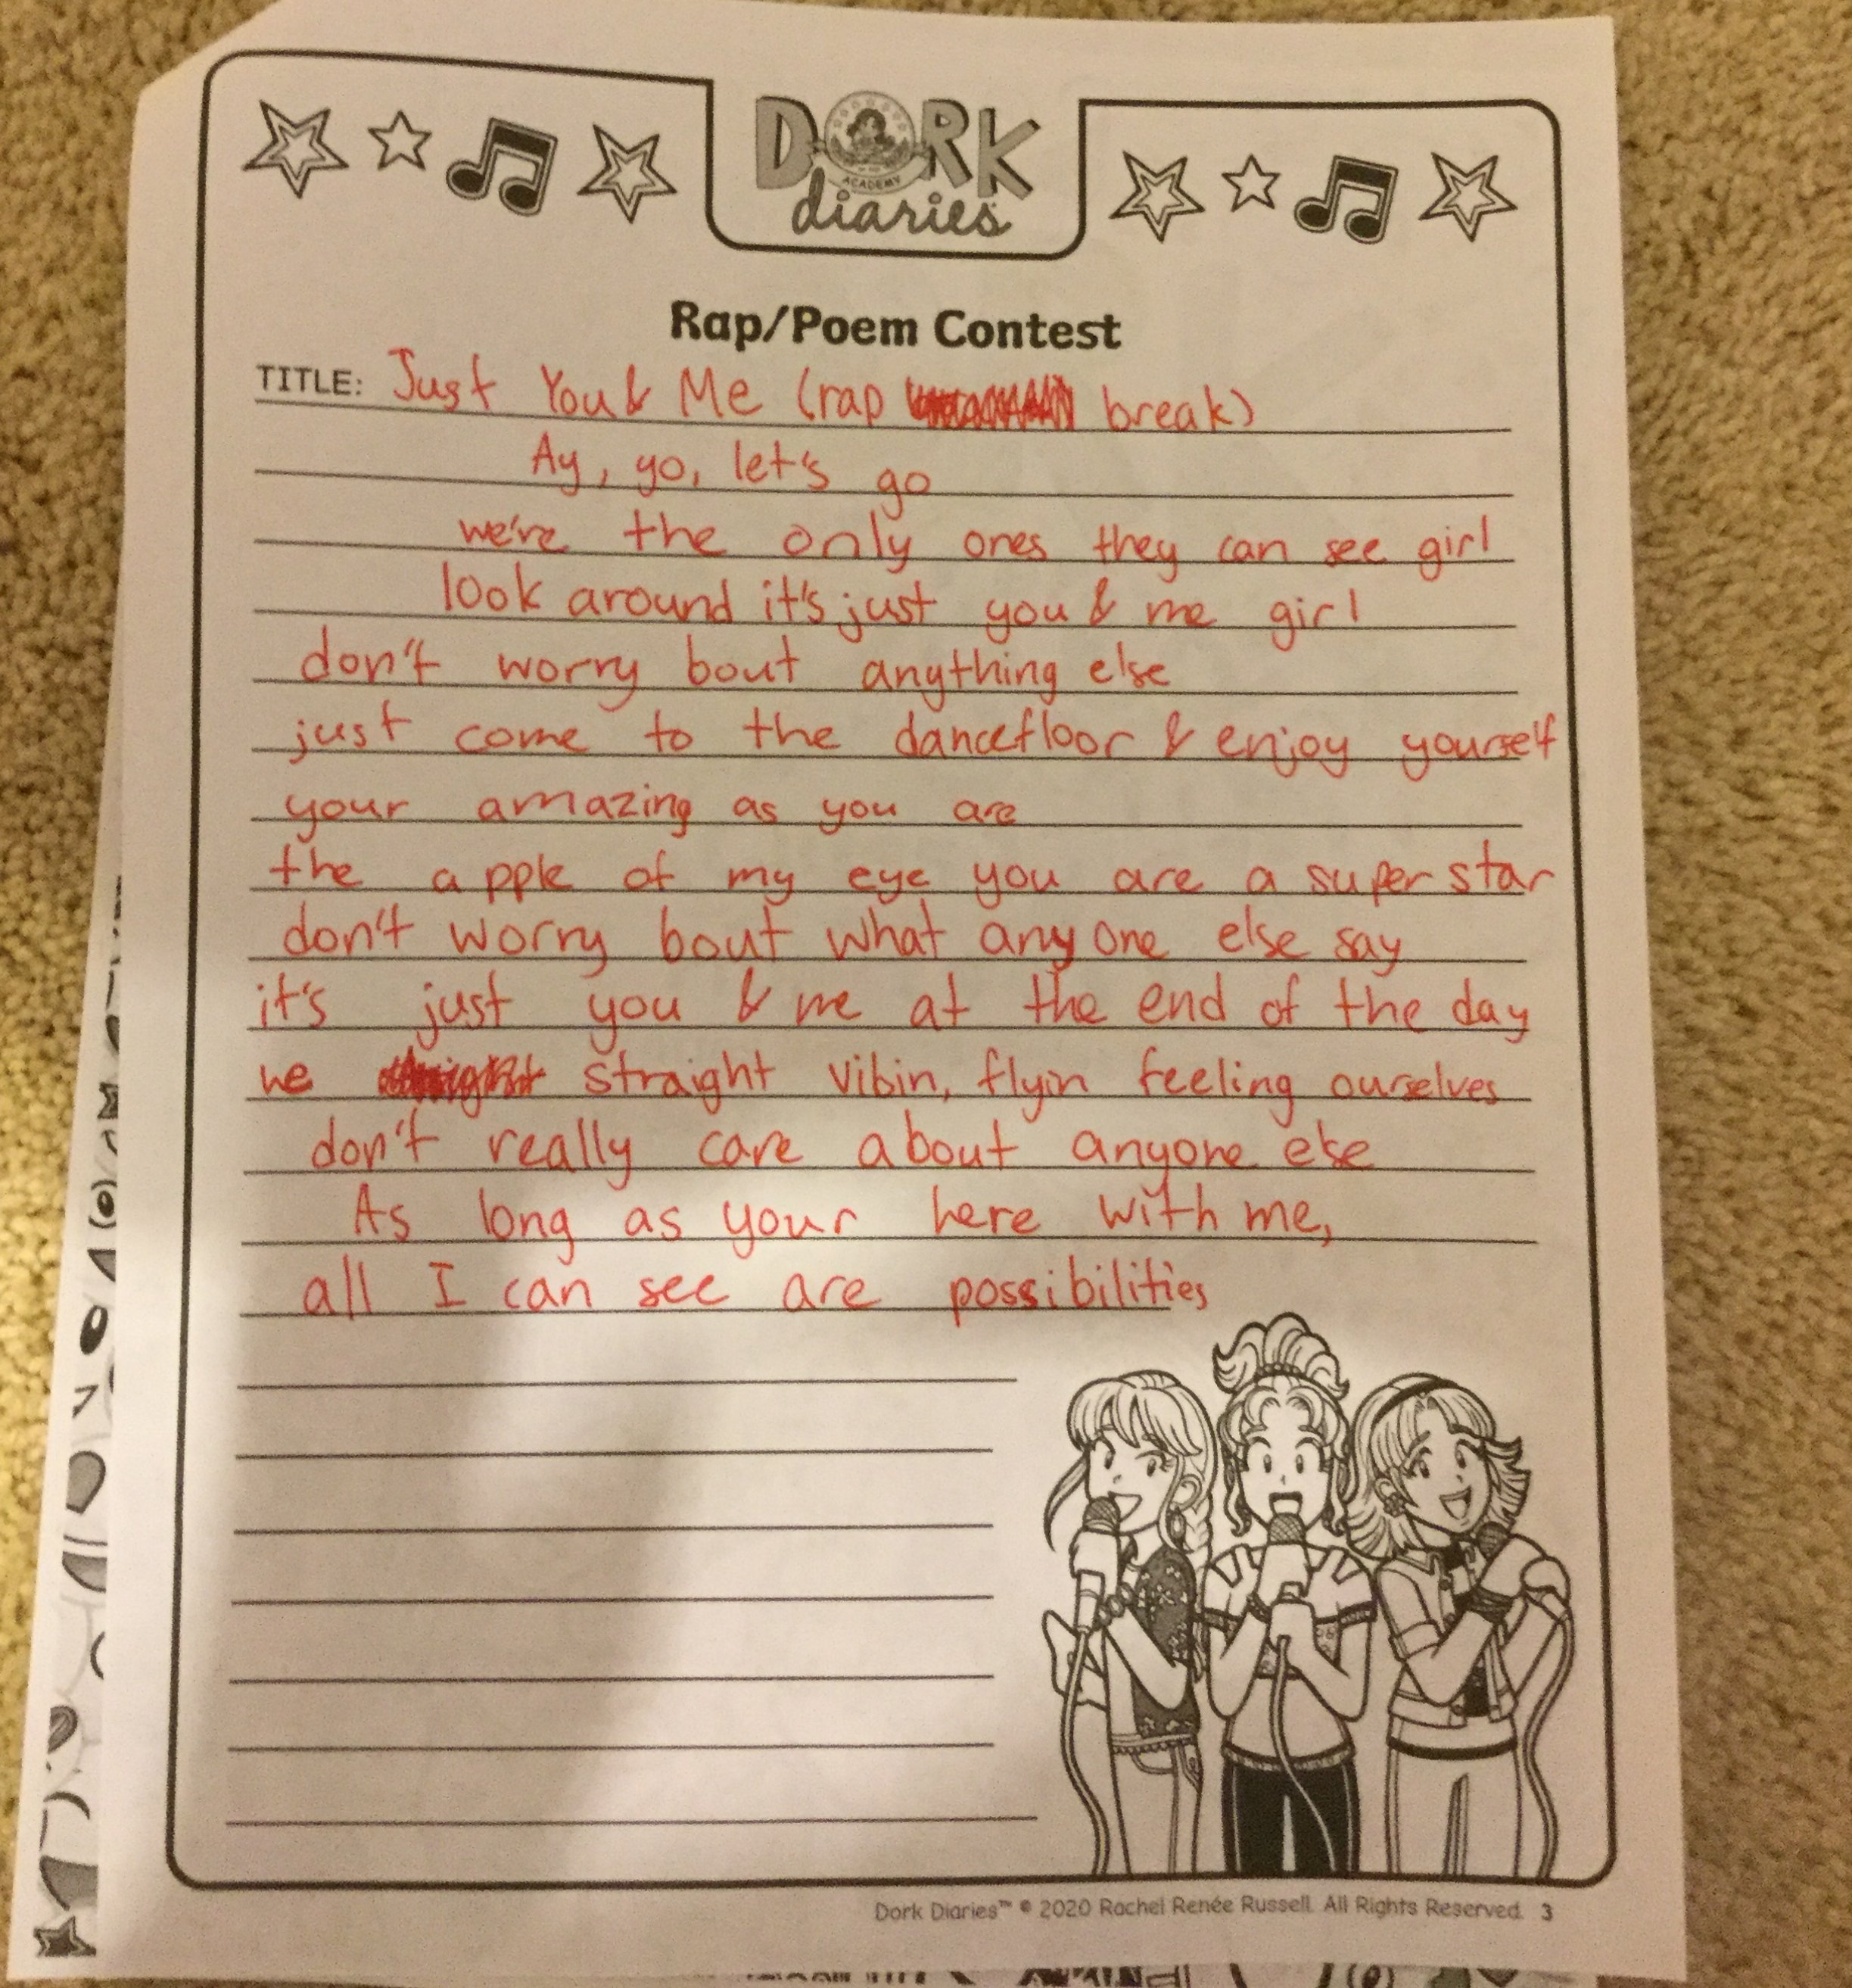 DORK
ACADEMY
diaries
Rap/Poem Contest
TITLE: Just You & Me (rap break)
Ay, yo, let's go
we're the only ones they can see girl
look around it's just you & me girl
don't worry bout anything else
just come to the dancefloor & enjoy yourself
your amazing as you are
the apple of my eye you are a superstar
don't worry bout what anyone else say
it's just you & me at the end of the day
we straight vibin, flyin feeling ourselves
don't really care about anyone else
As long as your here with me,
all I can see are possibilities
Dork Diaries™ © 2020 Rachel Renée Russell. All Rights Reserved. 3